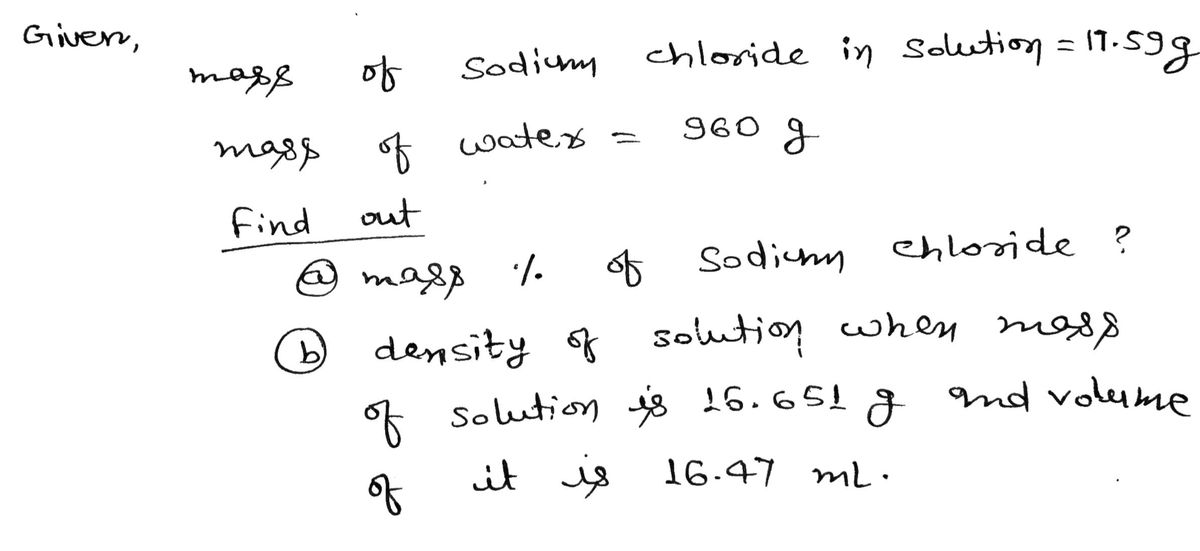 Given,
mass of Sodium chloride in solution = 17.59g
mass of water = 960 g
Find out
(a) mass % of Sodium chloride ?
(b) density of solution when mass
of solution is 16.651 g and volume
of it is 16.47 mL.